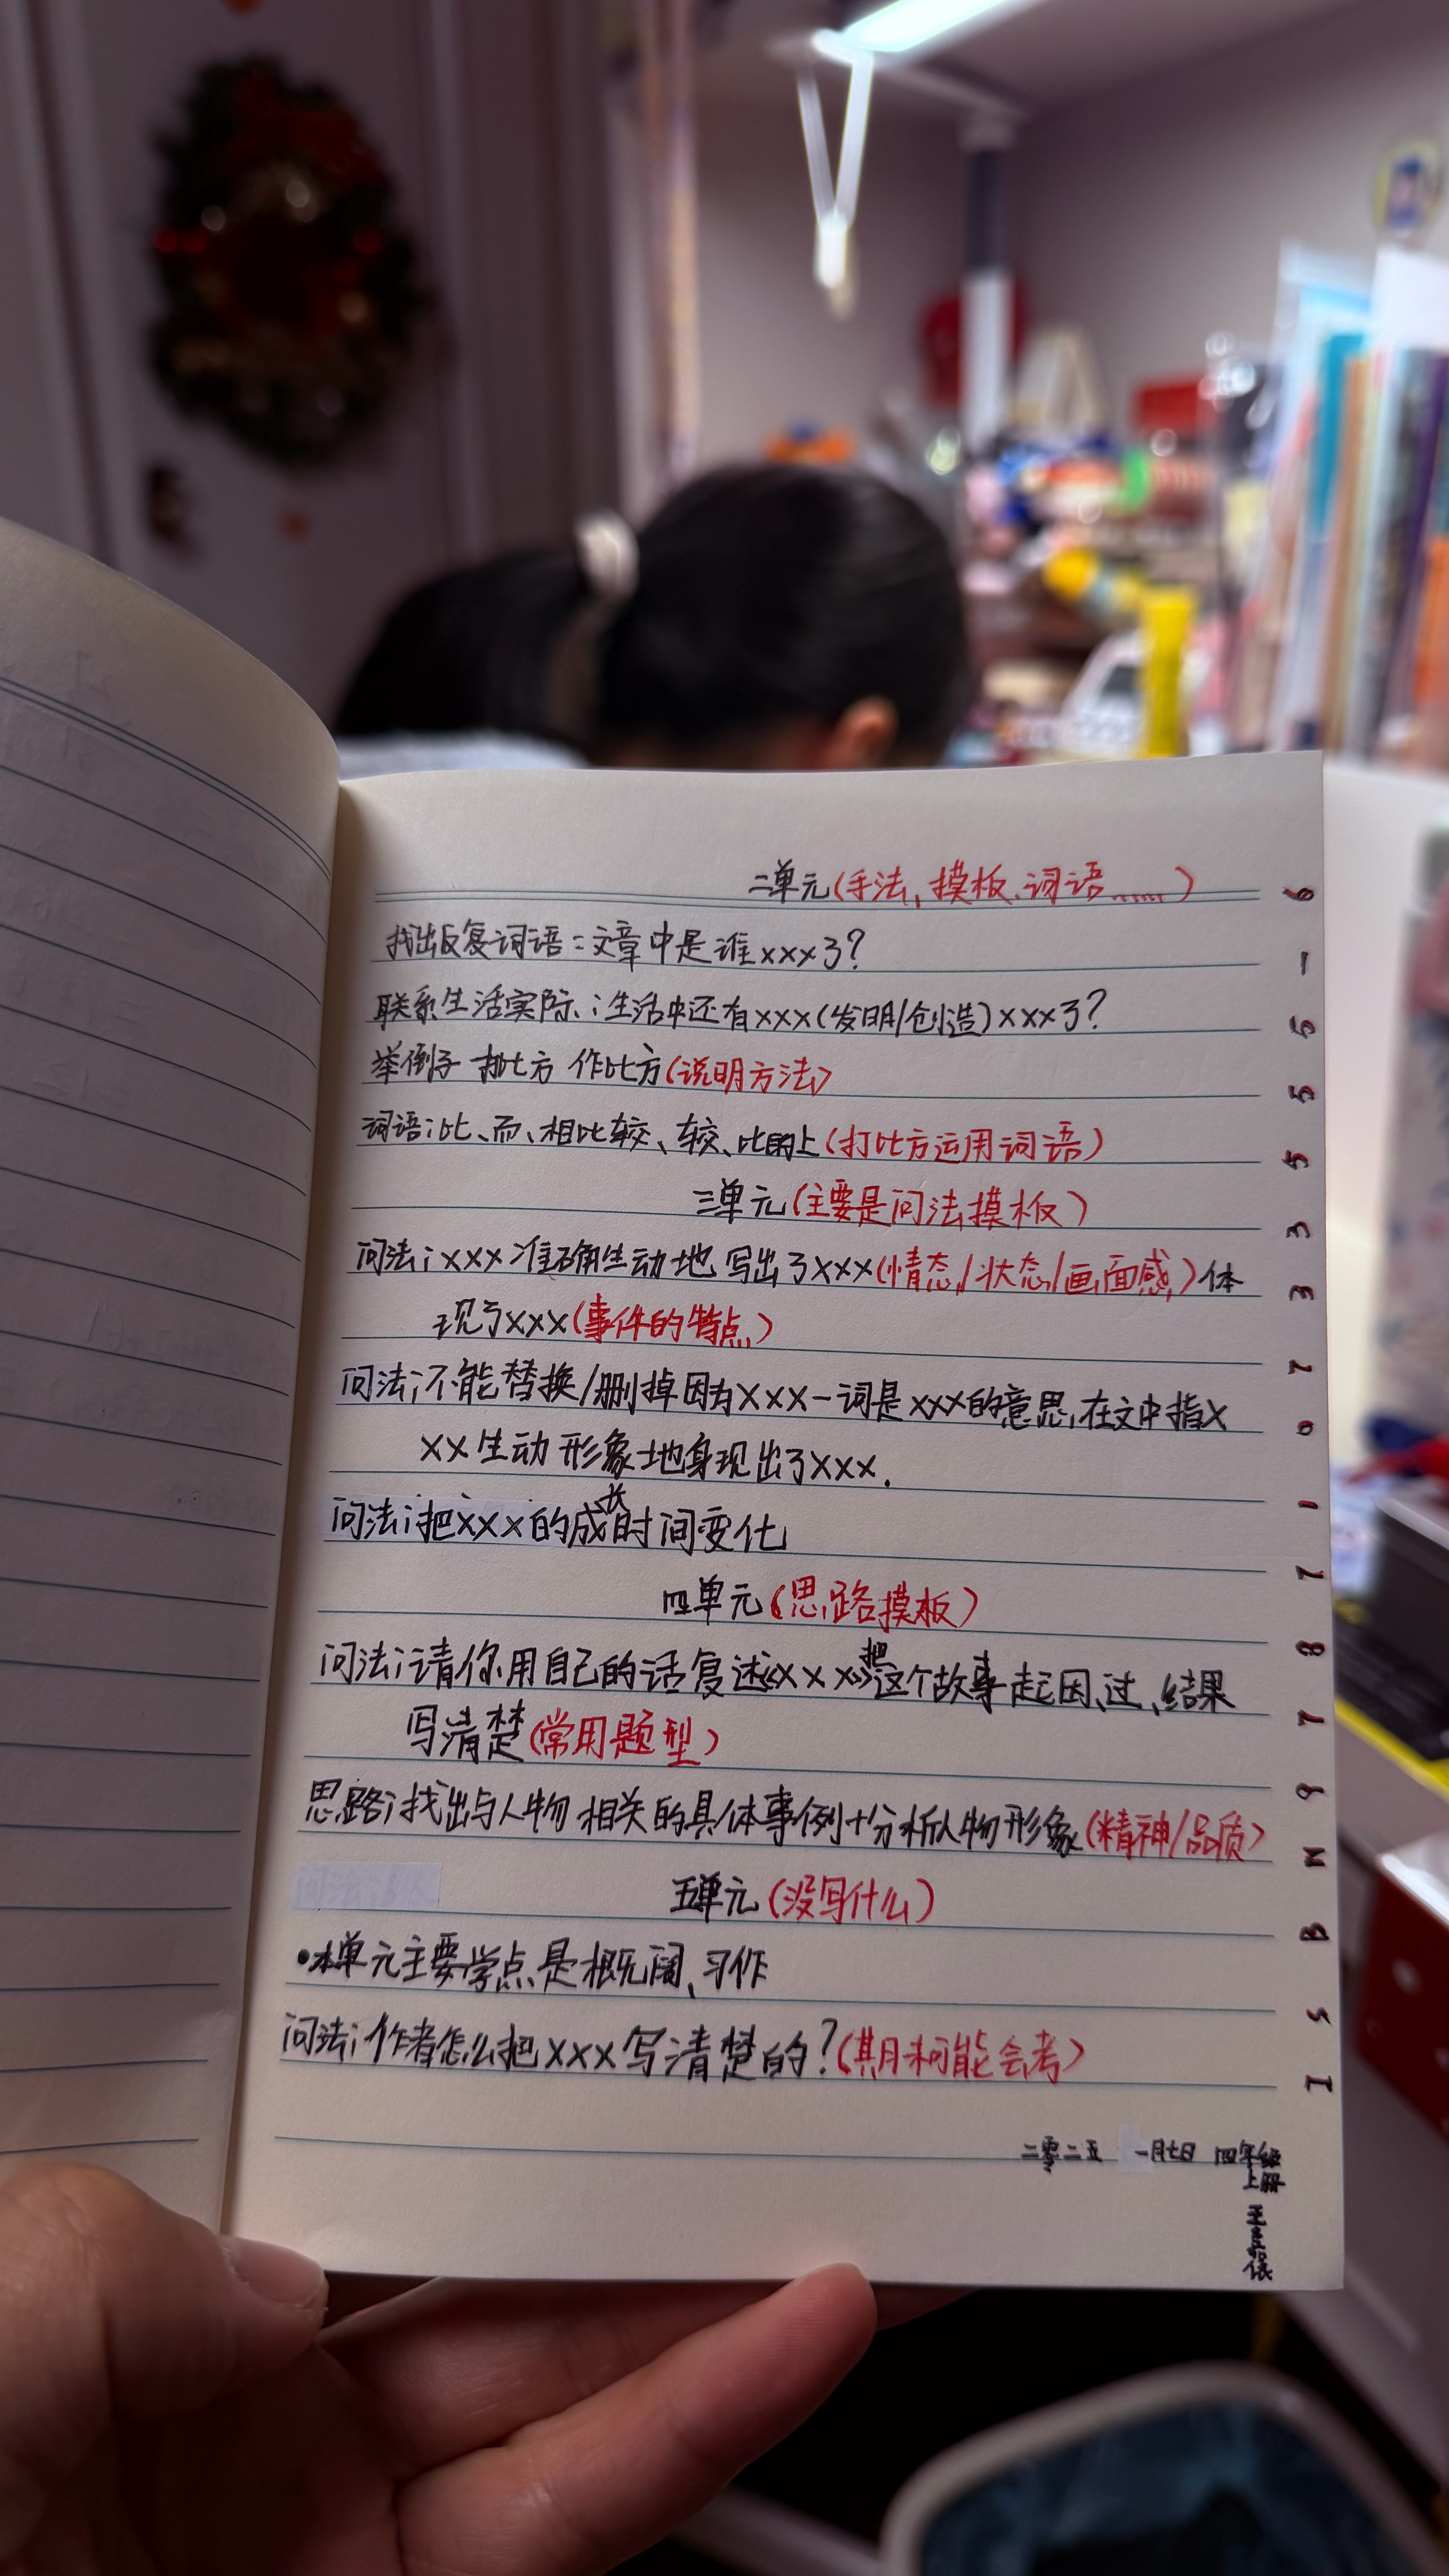 二单元(手法、摸板、词语……)
找出反复词语：文章中是谁xxx了?
联系生活实际：生活中还有xxx(发明/创造)xxx了?
举例子 打比方 作比方(说明方法)
词语：比、而、相比较、较、比的上(打比方运用词语)
三单元(主要是问法摸板)
问法：xxx准确生动地写出了xxx(情态/状态/画面感)体
现了xxx(事件的特点)
问法：不能替换/删掉因为xxx一词是xxx的意思,在文中指x
xx生动形象地身现出了xxx.
问法：把xxx的成长时间变化
四单元(思路摸板)
问法：请你用自己的话复述《xxx》把这个故事起因、过、结果
写清楚(常用题型)
思路：找出与人物相关的具体事例+分析人物形象(精神/品质)
五单元(没写什么)
•本单元主要学点是概阔、习作
问法：作者怎么把xxx写清楚的?(期末可能会考)
二零二五 一月七日 四年级
上册
王
6 - 5 5 5 3 3 7 0 1 7 8 7 9 M B S I